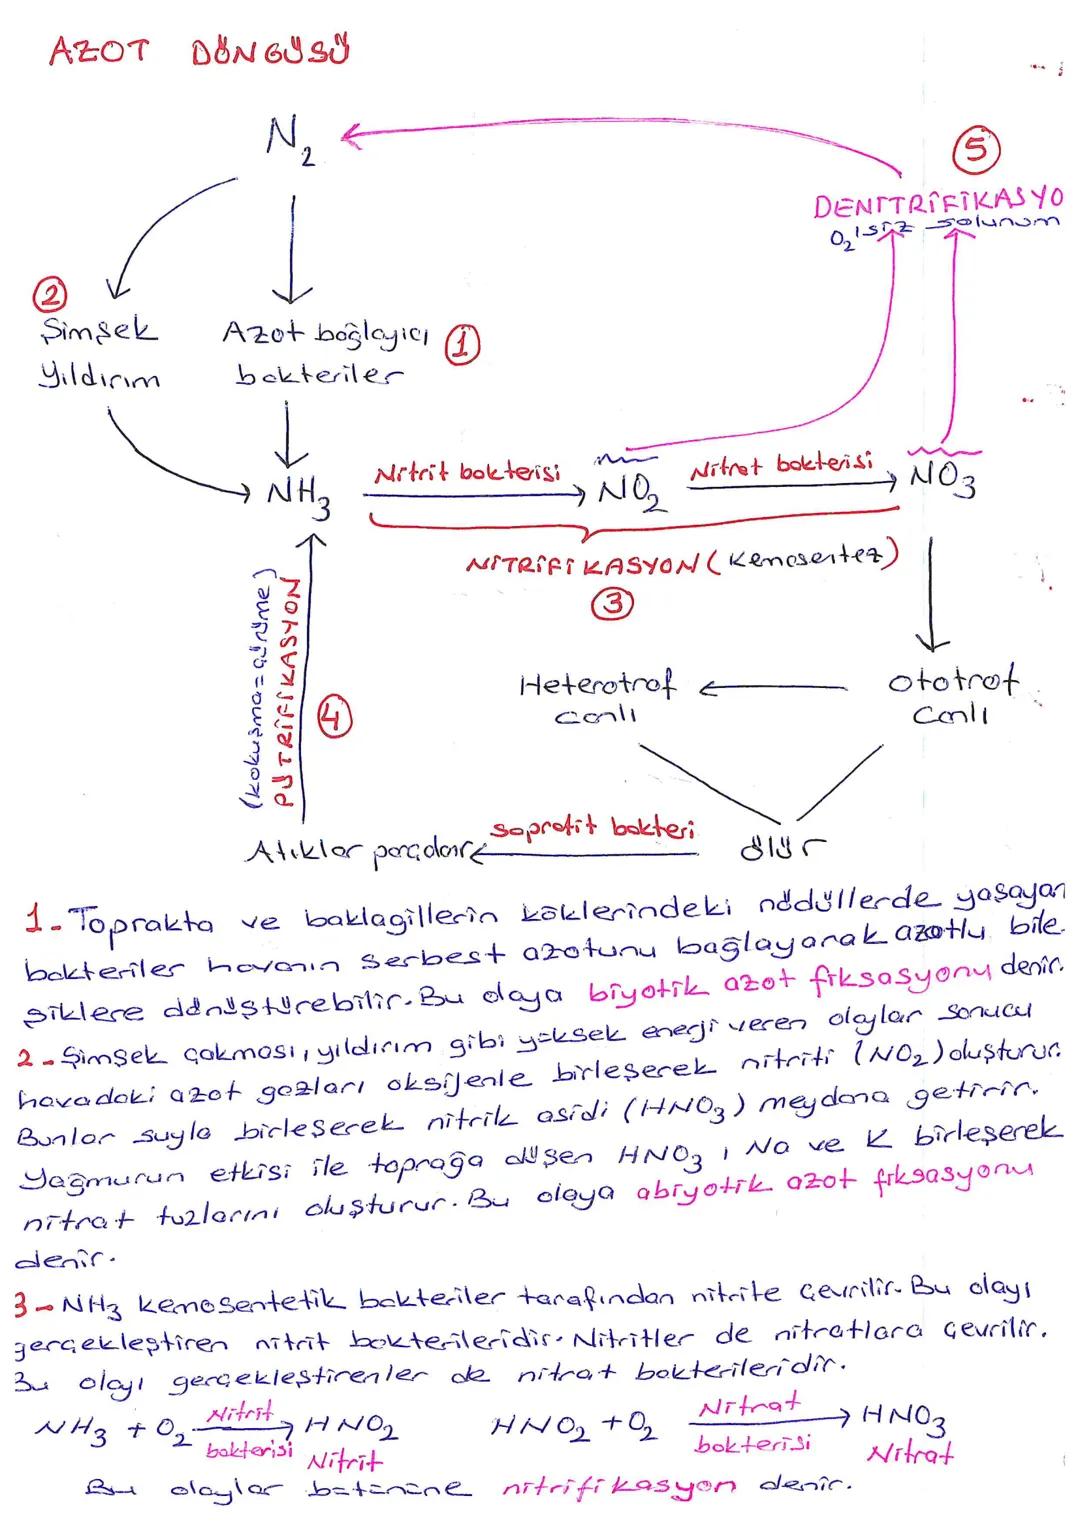 AZOT DÖNGÜSÜ
N2
5
DENİTRİFİKASYO
O2'siz solunum
2
Şimşek
Yıldırım
Azot bağlayıcı
bakteriler
1
NH3
Nitrit bakterisi
NO2
Nitrat bakterisi
NO3
NİTRİFİKASYON (Kemosentez)
3
(kokuşma=çürüme)
PÜTRİFİKASYON
4
Heterotrof
canlı
Ototrof
canlı
ölür
saprofit bakteri
Atıklar parçalanır
1- Toprakta ve baklagillerin köklerindeki nödüllerde yaşayan
bakteriler havanın serbest azotunu bağlayarak azotlu bile-
şiklere dönüştürebilir. Bu olaya biyotik azot fiksasyonu denir.
2- Şimşek çakması, yıldırım gibi yüksek enerji veren olaylar sonucu
havadaki azot gazları oksijenle birleşerek nitriti (NO2) oluşturur.
Bunlar suyla birleşerek nitrik asidi (HNO3) meydana getirir.
Yağmurun etkisi ile toprağa düşen HNO3, Na ve K birleşerek
nitrat tuzlarını oluşturur. Bu olaya abiyotik azot fiksasyonu
denir.
3- NH3 kemosentetik bakteriler tarafından nitrite çevrilir. Bu olayı
gerçekleştiren nitrit bakterileridir. Nitritler de nitratlara çevrilir.
Bu olayı gerçekleştirenler de nitrat bakterileridir.
NH3 + O2 Nitrit bakterisi HNO2 Nitrit
HNO2 + O2 Nitrat bakterisi HNO3 Nitrat
Bu olaylar bütününe nitrifikasyon denir.